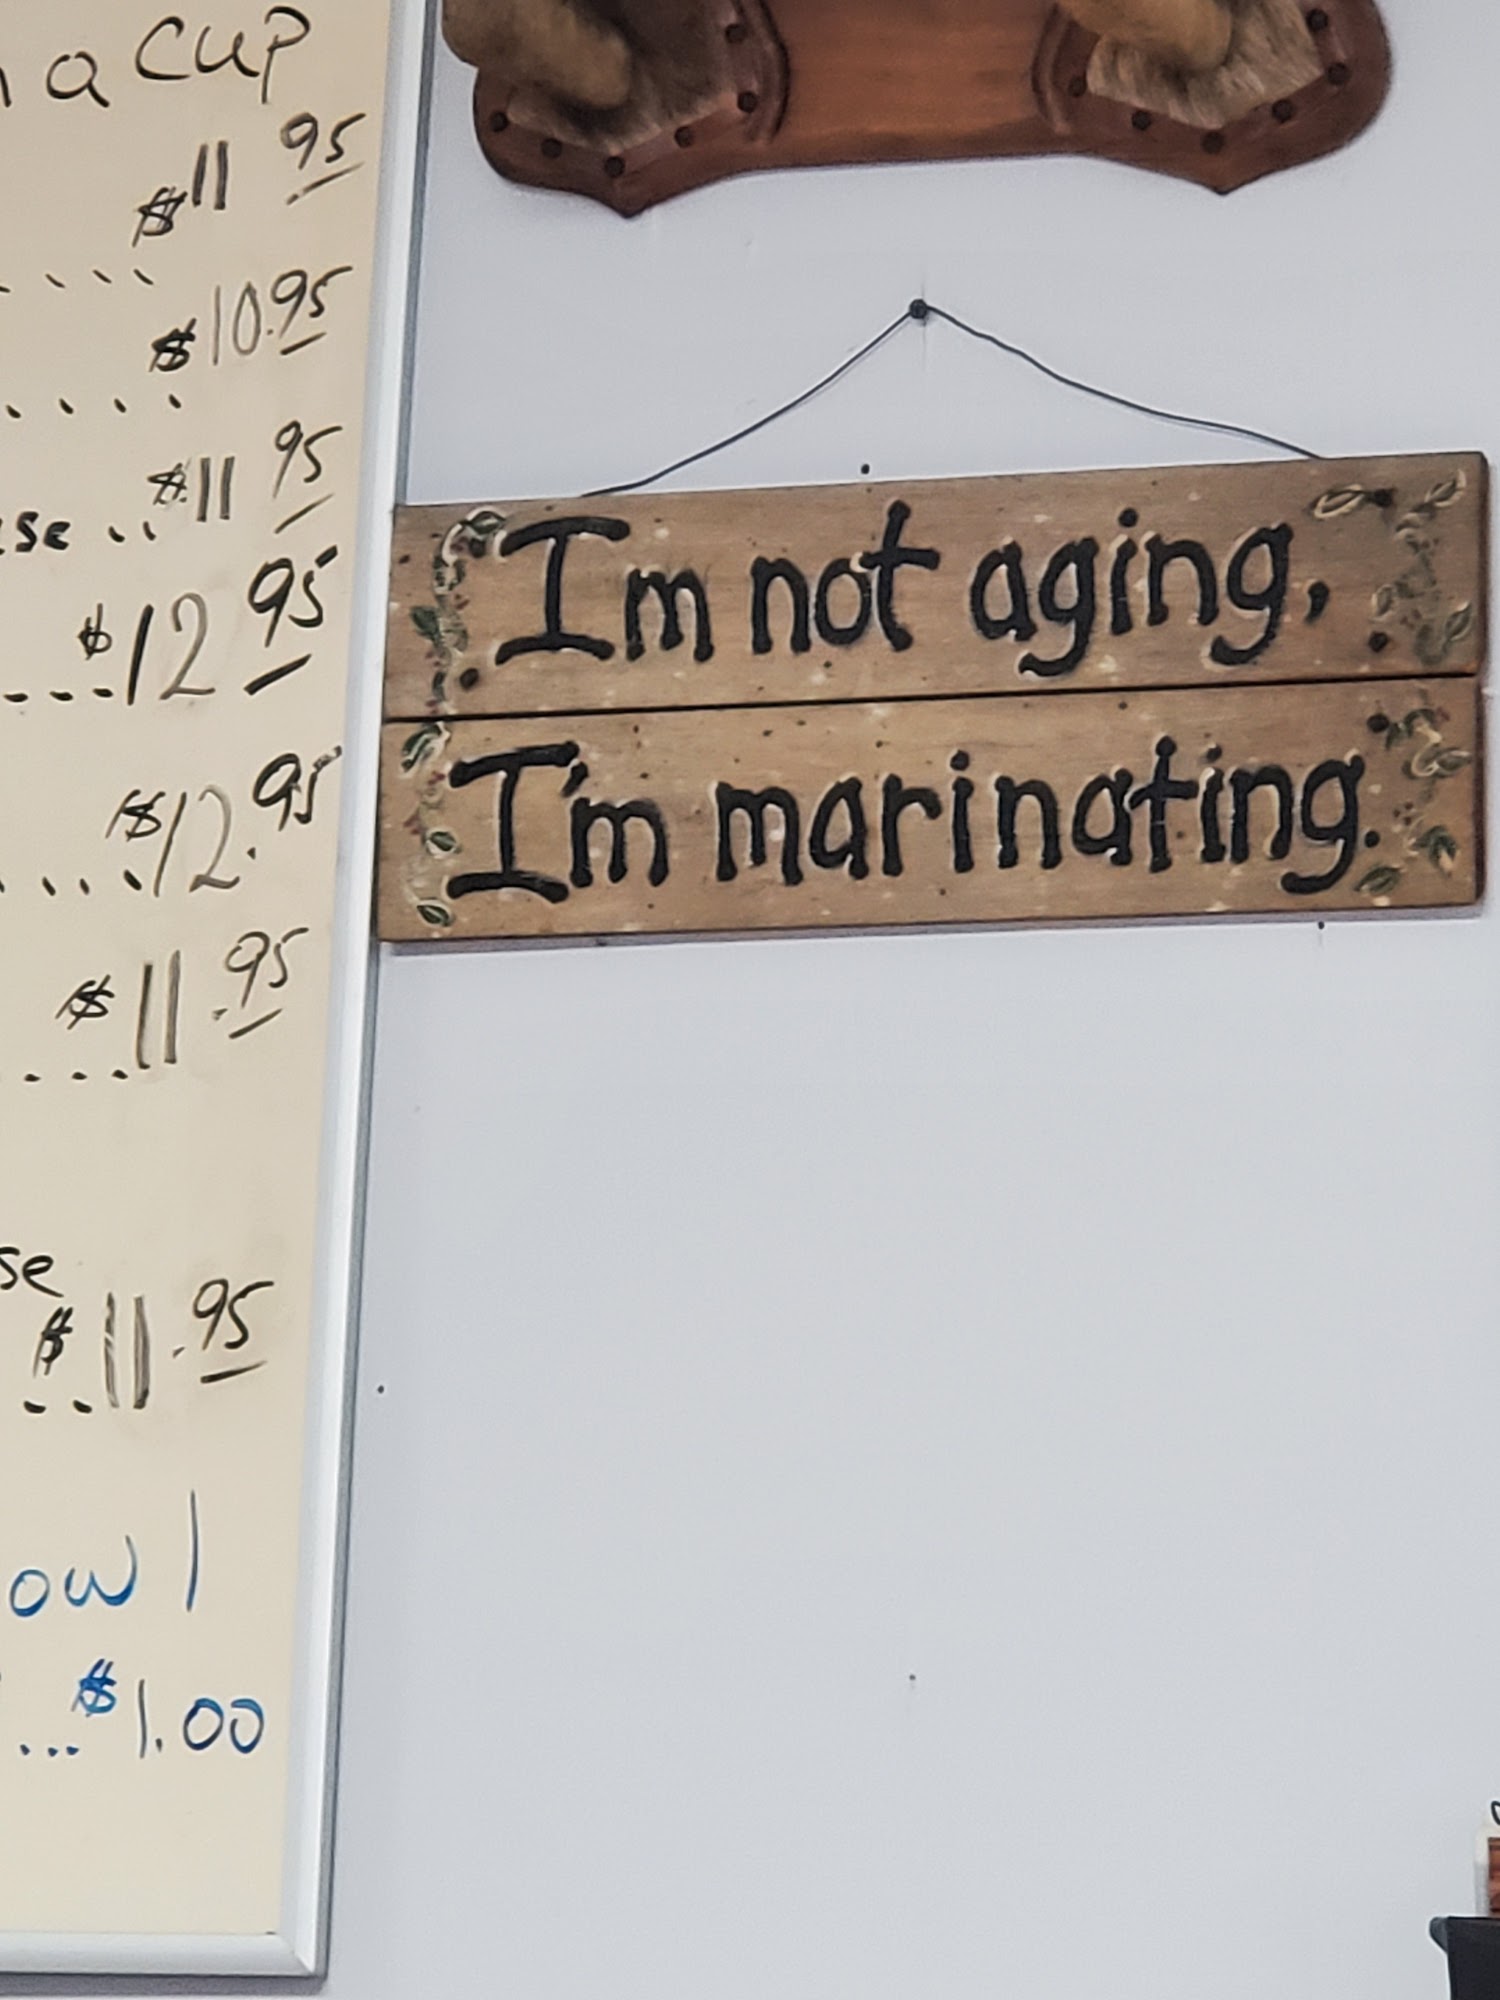 a CUP
$11 95
$10.95
$11 95
$12 95
$12.95
$11.95
$11.95
$1.00
Im not aging,
I'm marinating.